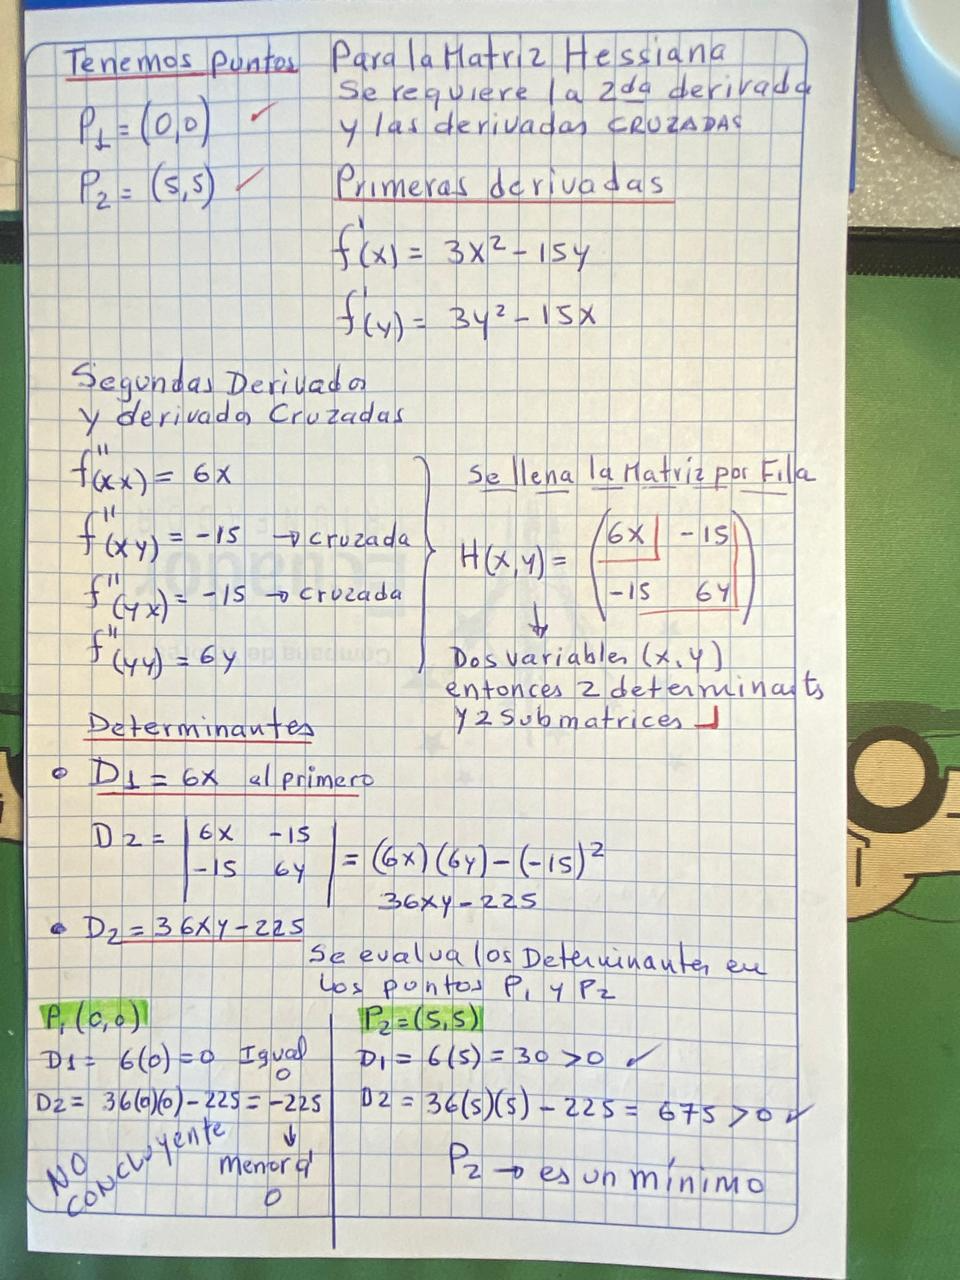 Tenemos Puntos
P1 = (0,0) ✓
P2 = (5,5) ✓
Para la Matriz Hessiana
Se requiere la 2da derivada
y las derivadas CRUZADAS
Primeras derivadas
f'(x) = 3x² - 15y
f'(y) = 3y² - 15x
Segundas Derivadas
y derivadas Cruzadas
f''(xx) = 6x
f''(xy) = -15 → cruzada
f''(yx) = -15 → cruzada
f''(yy) = 6y
Se llena la Matriz por Fila
H(x,y) = ( 6x -15
-15 6y )
↓
Dos variables (x,y)
entonces 2 determinants
y 2 submatrices ┘
Determinantes
• D1 = 6x al primero
D2 = | 6x -15
-15 6y | = (6x)(6y) - (-15)²
36xy - 225
• D2 = 36xy - 225
Se evalua los Determinantes en
los puntos P1 y P2
P1(0,0)
D1 = 6(0) = 0 Igual
0
D2 = 36(0)(0) - 225 = -225
↓
menor a
0
NO
CONCLUYENTE
P2 = (5,5)
D1 = 6(5) = 30 > 0 ✓
D2 = 36(5)(5) - 225 = 675 > 0 ✓
P2 → es un mínimo